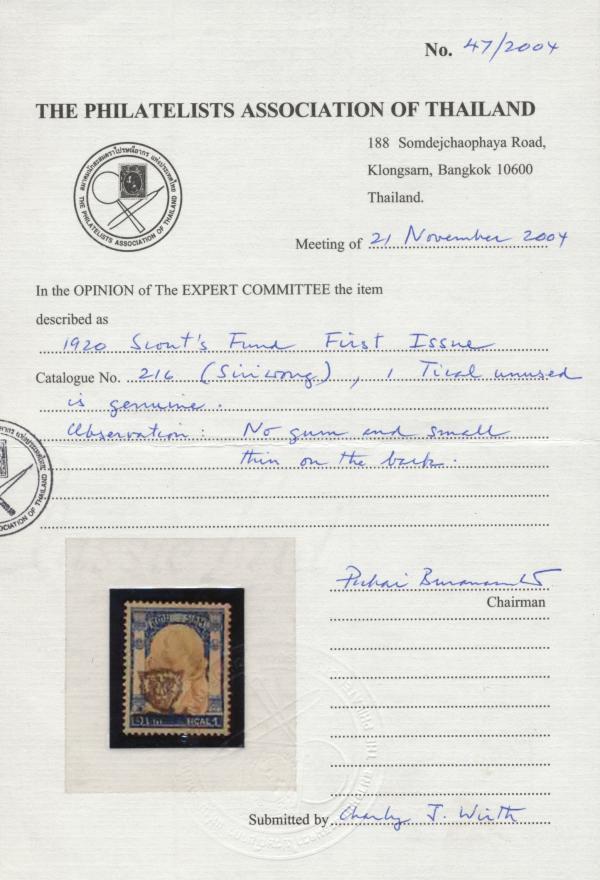 No. 47/2004
THE PHILATELISTS ASSOCIATION OF THAILAND
188 Somdejchaophaya Road,
Klongsarn, Bangkok 10600
Thailand.
สมาคมนักสะสมตราไปรษณียากร แห่งประเทศไทย
THE PHILATELISTS ASSOCIATION OF THAILAND
Meeting of 21 November 2004
In the OPINION of The EXPERT COMMITTEE the item
described as
1920 Scout's Fund First Issue
Catalogue No. 216 (Siriwong), 1 Tical unused
is genuine.
Observation: No gum and small
thin on the back.
ASSOCIATION OF THAILAND
Chairman
TICAL 1
Submitted by Charly J. Wirth